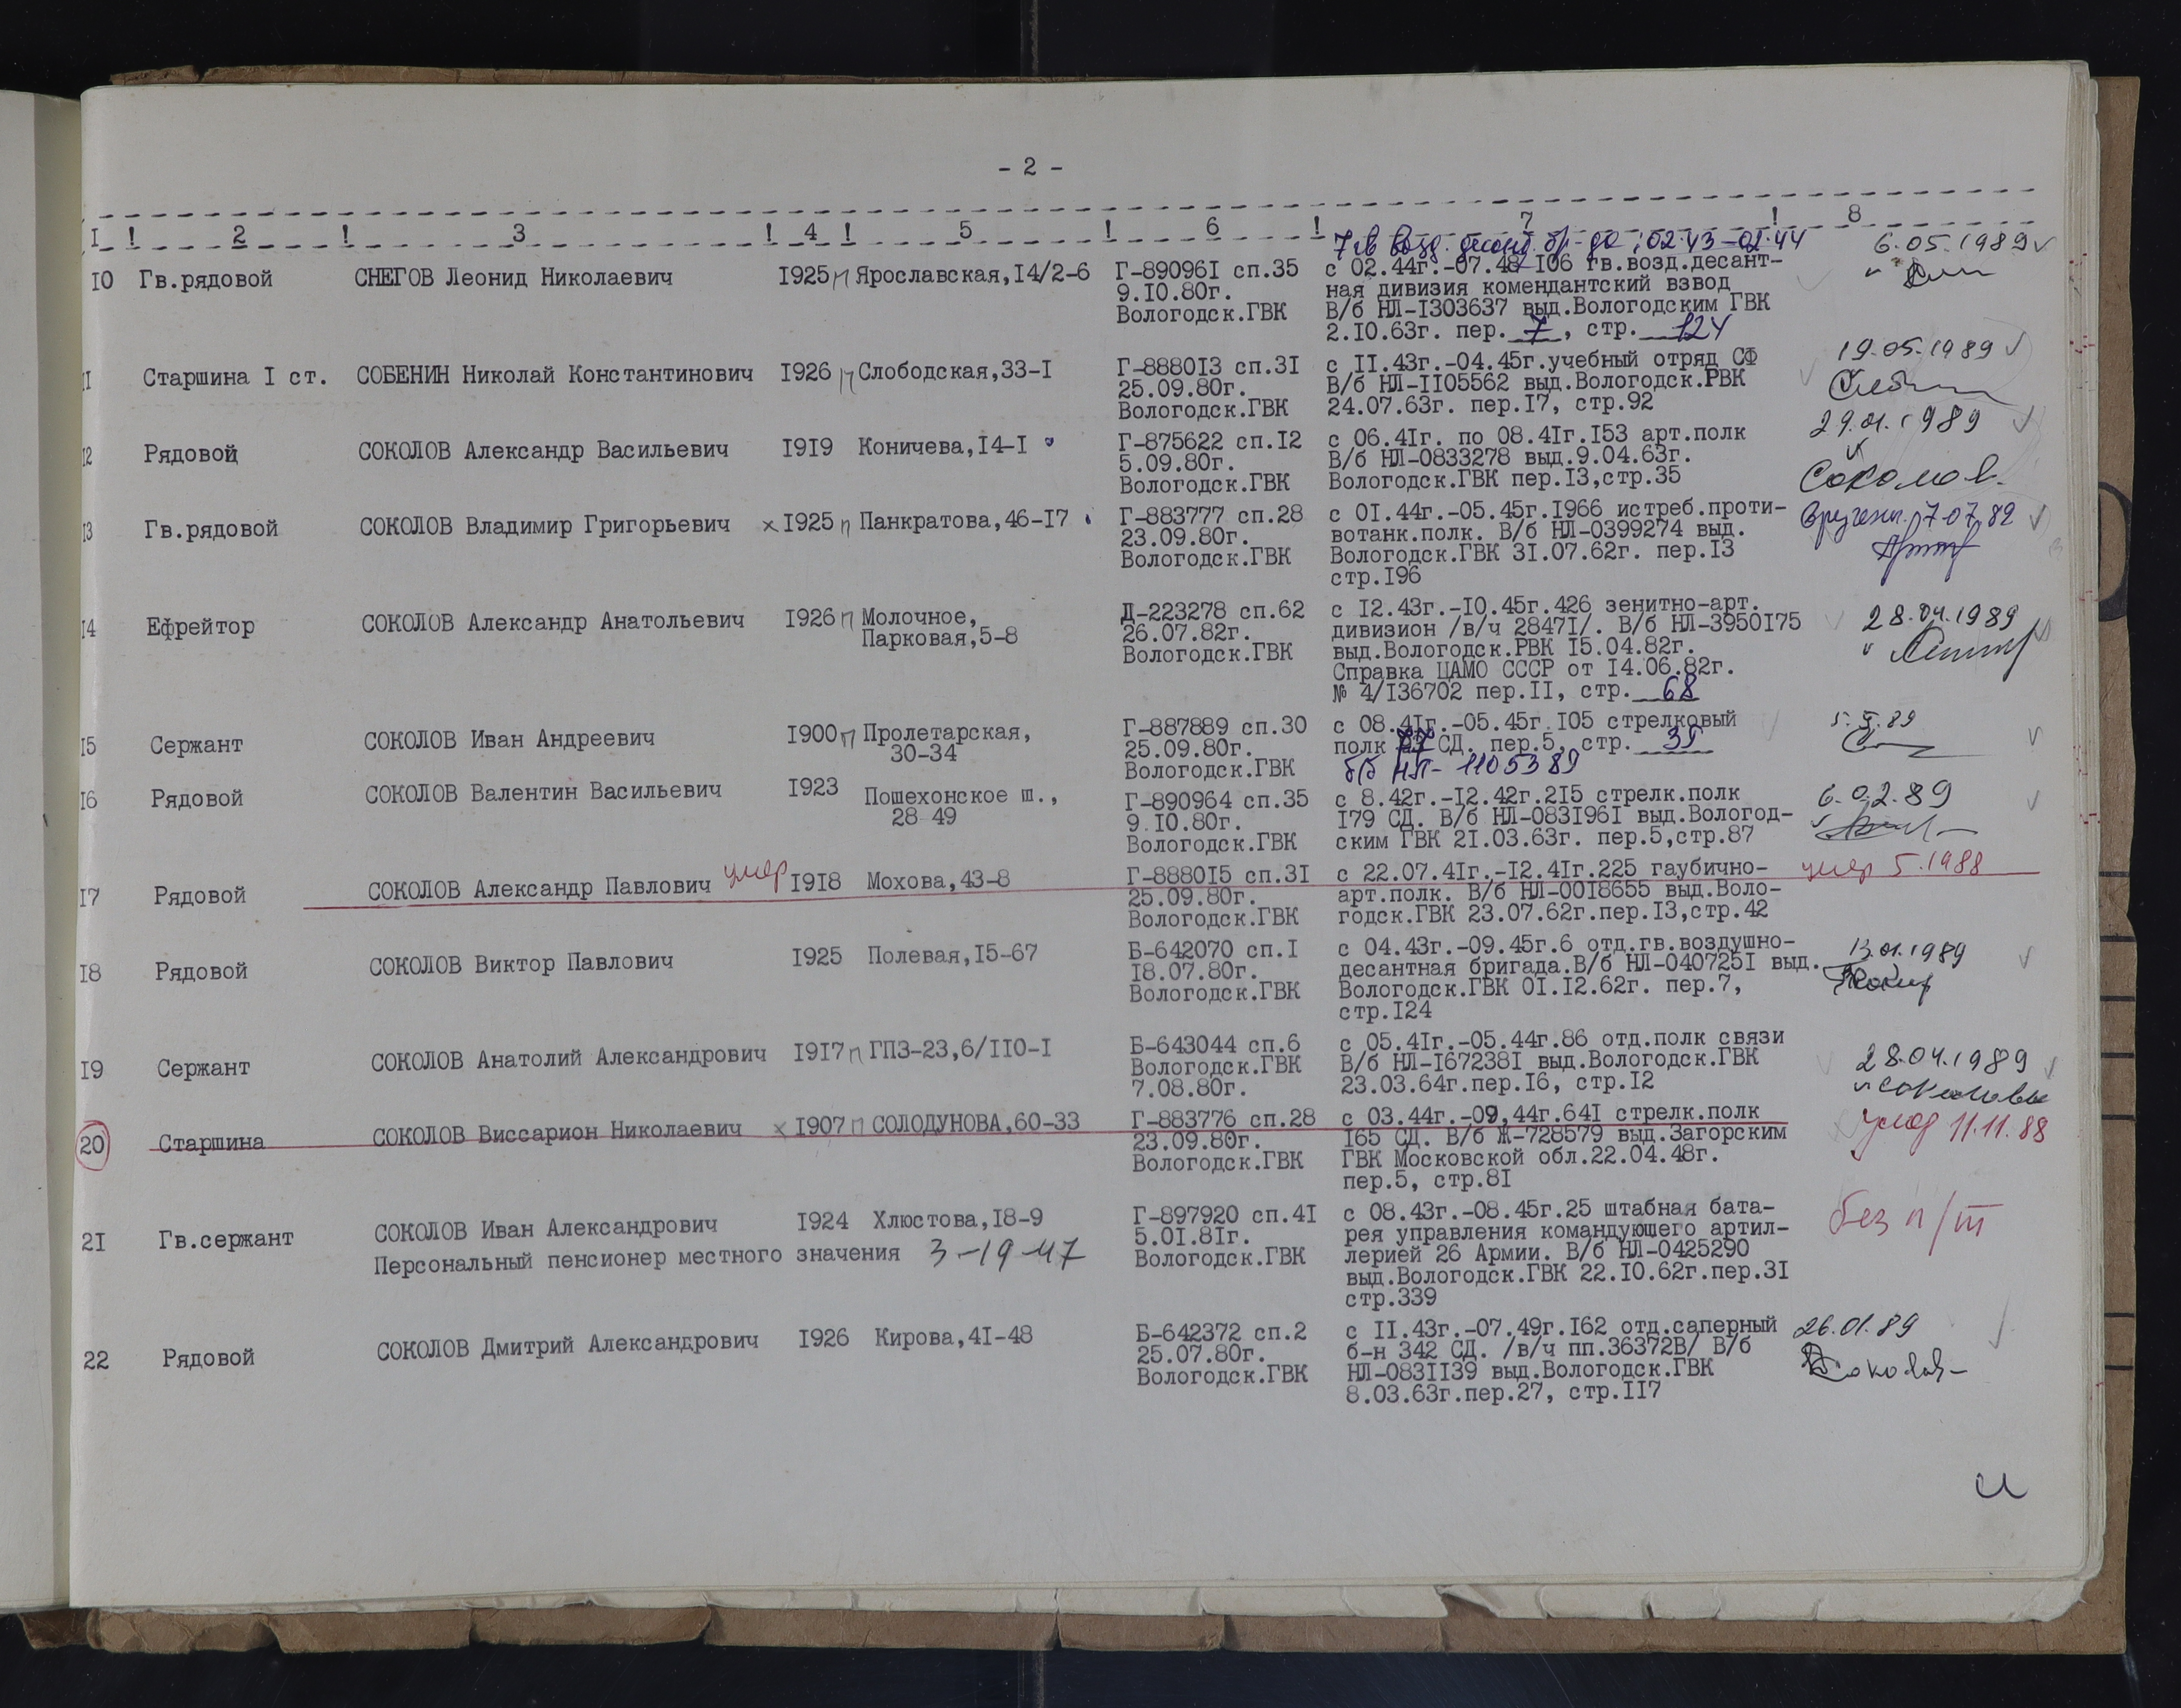 - 2 -
I ! 2 ! 3 ! 4 ! 5 ! 6 ! 7 ! 8
10 Гв.рядовой СНЕГОВ Леонид Николаевич 1925 п Ярославская,14/2-6 Г-890961 сп.35
9.10.80г.
Вологодск.ГВК
02.43-02.44
с 02.44г.-07.48 106 гв.возд.десант-
ная дивизия комендантский взвод
В/б НЛ-1303637 выд.Вологодским ГВК
2.10.63г. пер. 7, стр. 124
6.05.1989
11 Старшина I ст. СОБЕНИН Николай Константинович 1926 п Слободская,33-1 Г-888013 сп.31
25.09.80г.
Вологодск.ГВК
с 11.43г.-04.45г.учебный отряд СФ
В/б НЛ-1105562 выд.Вологодск.РВК
24.07.63г. пер.17, стр.92
19.05.1989
12 Рядовой СОКОЛОВ Александр Васильевич 1919 Коничева,14-1 Г-875622 сп.12
5.09.80г.
Вологодск.ГВК
с 06.41г. по 08.41г.153 арт.полк
В/б НЛ-0833278 выд.9.04.63г.
Вологодск.ГВК пер.13,стр.35
29.01.1989
Соколов
13 Гв.рядовой СОКОЛОВ Владимир Григорьевич х 1925 п Панкратова,46-17 Г-883777 сп.28
23.09.80г.
Вологодск.ГВК
с 01.44г.-05.45г.1966 истреб.проти-
вотанк.полк. В/б НЛ-0399274 выд.
Вологодск.ГВК 31.07.62г. пер.13
стр.196
14 Ефрейтор СОКОЛОВ Александр Анатольевич 1926 п Молочное,
Парковая,5-8
Д-223278 сп.62
26.07.82г.
Вологодск.ГВК
с 12.43г.-10.45г.426 зенитно-арт.
дивизион /в/ч 28471/. В/б НЛ-3950175
выд.Вологодск.РВК 15.04.82г.
Справка ЦАМО СССР от 14.06.82г.
№ 4/136702 пер.11, стр. 68
28.04.1989
15 Сержант СОКОЛОВ Иван Андреевич 1900 п Пролетарская,
30-34
Г-887889 сп.30
25.09.80г.
Вологодск.ГВК
с 08.41г.-05.45г.105 стрелковый
полк 77 СД. пер.5, стр. 39
б/б НЛ-1105389
16 Рядовой СОКОЛОВ Валентин Васильевич 1923 Пошехонское ш.,
28-49
Г-890964 сп.35
9.10.80г.
Вологодск.ГВК
с 8.42г.-12.42г.215 стрелк.полк
179 СД. В/б НЛ-0831961 выд.Вологод-
ским ГВК 21.03.63г. пер.5,стр.87
6.02.89
17 Рядовой СОКОЛОВ Александр Павлович умер 1918 Мохова,43-8 Г-888015 сп.31
25.09.80г.
Вологодск.ГВК
с 22.07.41г.-12.41г.225 гаубично-
арт.полк. В/б НЛ-0018655 выд.Воло-
годск.ГВК 23.07.62г.пер.13,стр.42
умер 5.1988
18 Рядовой СОКОЛОВ Виктор Павлович 1925 Полевая,15-67 Б-642070 сп.1
18.07.80г.
Вологодск.ГВК
с 04.43г.-09.45г.6 отд.гв.воздушно-
десантная бригада.В/б НЛ-0407251 выд.
Вологодск.ГВК 01.12.62г. пер.7,
стр.124
13.01.1989
19 Сержант СОКОЛОВ Анатолий Александрович 1917 п ГПЗ-23,6/110-1 Б-643044 сп.6
Вологодск.ГВК
7.08.80г.
с 05.41г.-05.44г.86 отд.полк связи
В/б НЛ-1672381 выд.Вологодск.ГВК
23.03.64г.пер.16, стр.12
28.04.1989
20 Старшина СОКОЛОВ Виссарион Николаевич х 1907 п СОЛОДУНОВА,60-33 Г-883776 сп.28
23.09.80г.
Вологодск.ГВК
с 03.44г.-09,44г.641 стрелк.полк
165 СД. В/б Ж-728579 выд.Загорским
ГВК Московской обл.22.04.48г.
пер.5, стр.81
11.11.88
21 Гв.сержант СОКОЛОВ Иван Александрович 1924 Хлюстова,18-9
Персональный пенсионер местного значения 3-19-47
Г-897920 сп.41
5.01.81г.
Вологодск.ГВК
с 08.43г.-08.45г.25 штабная бата-
рея управления командующего артил-
лерией 26 Армии. В/б НЛ-0425290
выд.Вологодск.ГВК 22.10.62г.пер.31
стр.339
без п/т
22 Рядовой СОКОЛОВ Дмитрий Александрович 1926 Кирова,41-48 Б-642372 сп.2
25.07.80г.
Вологодск.ГВК
с 11.43г.-07.49г.162 отд.саперный
б-н 342 СД. /в/ч пп.36372В/ В/б
НЛ-0831139 выд.Вологодск.ГВК
8.03.63г.пер.27, стр.117
26.01.89